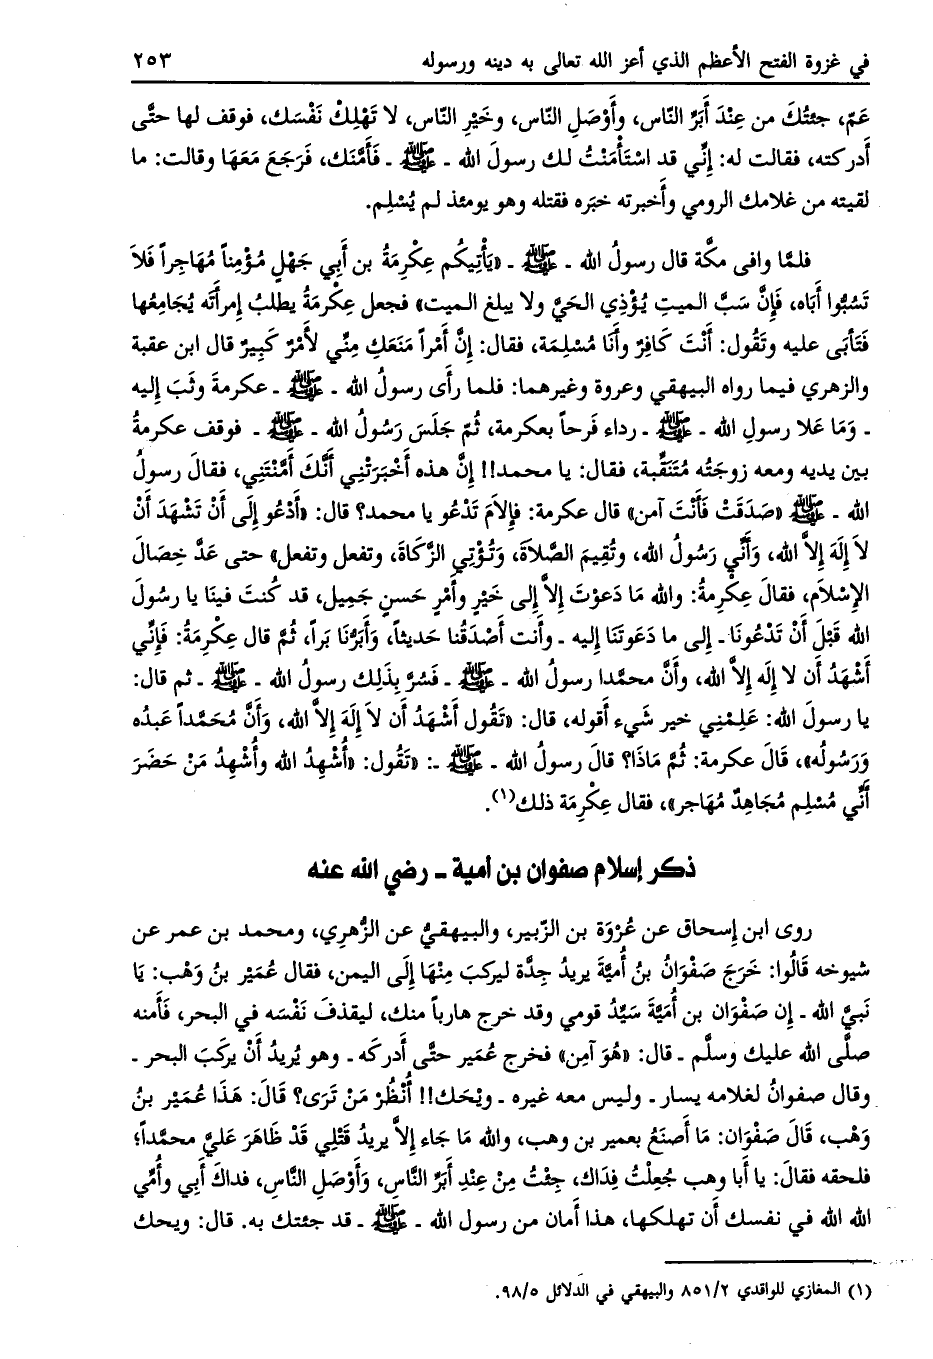 في غزوة الفتح الأعظم الذي أعز الله تعالى به دينه ورسوله ٢٥٣
عَمّ، جئتُكَ من عِنْدَ أَبَرُّ النَّاس، وأَوْصَلِ النَّاس، وخَيْرِ النَّاس، لا تَهْلِكْ نَفْسَك، فوقف لها حتَّى
أدركته، فقالت له: إنِّي قد اسْتَأمَنْتُ لك رسولَ الله - ﷺ - فَأَمَّنَك، فَرَجَع مَعَهَا وقالت: ما
لقيته من غلامك الرومي وأخبرته خبَره فقتله وهو يومئذ لم يُسْلِم.
فلمَّا وافى مكَّة قال رسولُ الله - ﷺ - «يَأْتِيكُم عِكْرِمَةُ بن أَبِي جَهْلٍ مُؤْمِناً مُهَاجراً فَلاَ
تَسُبُّوا أَبَاه، فَإِنَّ سَبَّ الميتِ يُؤْذِي الحَيَّ ولا يبلغ الميت» فجعل عِكْرِمَةُ يطلبُ إمرأَتَه يُجَامِعُها
فَتَأبَى عليه وتَقُول: أَنْتَ كَافِرٌ وأَنَا مُسْلِمَة، فقال: إنَّ أَمْراً مَنَعَكِ مِنِّي لأَمْرٌ كَبِيرٌ قال ابن عقبة
والزهري فيما رواه البيهقي وعروة وغيرهما: فلما رأى رسولُ الله - ﷺ - عكرمةَ وثَبَ إليه
- وَمَا عَلا رسولِ الله - ﷺ - رداء فَرحاً بعكرمة، ثُمّ جَلَسَ رَسُولُ الله - ﷺ - فوقف عكرمةُ
بين يديه ومعه زوجَتُه مُتَنَقِّبة، فقال: يا محمد!! إنَّ هذه أَخْبَرَتْنِي أَنَّكَ أَمَّنْتَنِي، فقالَ رسولُ
الله - ﷺ «صَدَقَتْ فَأَنْتَ آمن» قال عكرمة: فإلاَمَ تَدْعُو يا محمد؟ قال: «أَدْعُو إِلَى أَنْ تَشْهَدَ أَنْ
لاَ إلَهَ إلاَّ الله، وَأَنِّي رَسُولُ الله، وتُقِيمَ الصَّلاَةَ، وَتُؤْتِي الزَّكَاةَ، وتفعل وتفعل» حتى عَدَّ خِصَالَ
الإِسْلاَم، فقالَ عِكْرِمةُ: والله مَا دَعوْتَ إلاَّ إلى خَيْرٍ وأَمْرٍ حَسنٍ جَمِيل، قد كُنتَ فينَا يا رسُولَ
الله قَبْلَ أَنْ تَدْعُونَا - إلى ما دَعَوتَنَا إليه - وأنت أَصْدَقُنا حديثاً، وَأَبَرُّنَا بَراً، ثُمَّ قال عِكْرِمَةُ: فَإِنِّي
أشْهَدُ أن لا إلَه إلاَّ الله، وأَنَّ محمَّدا رسولُ الله - ﷺ - فَسُرَّ بِذَلِك رسولُ الله - ﷺ - ثم قال:
يا رسولَ الله: عَلِمْنِي خير شَيْء أقوله، قال: «تَقُول أَشْهَدُ أَن لاَ إلَهَ إلاَّ الله، وَأَنَّ مُحَمَّداً عَبدُه
وَرَسُولُه»، قَالَ عكرمة: ثُمَّ مَاذَا؟ قالَ رسولُ الله - ﷺ -: «تَقُول: «أُشْهِدُ الله وأُشْهِدُ مَنْ حَضَرَ
أَنِّي مُسْلِم مُجَاهِدٌ مُهَاجر»، فقال عِكْرِمَة ذلك(١).
ذكر إسلام صفوان بن أمية - رضي الله عنه
روى ابن إسحاق عن عُرْوَة بن الزّبير، والبيهقيُّ عن الزُّهرِي، ومحمد بن عمر عن
شيوخه قَالُوا: خَرَجَ صَفْوَانُ بنُ أُميَّةَ يريدُ جدَّة ليركبَ مِنْهَا إلَى اليمن، فقال عُمَيْر بنُ وَهْب: يَا
نَبيَّ الله - إن صَفْوَان بن أُمَيَّةَ سَيِّدُ قومي وقد خرج هارباً منك، ليقذفَ نَفْسَه في البحر، فَأَمنه
صلَّى الله عليك وسلَّم - قال: «هُوَ آمِن» فخرج عُمَير حتَّى أدركَه - وهو يُريدُ أَنْ يركَبَ البحر -
وقال صفوانُ لغلامه يسار - وليس معه غيره - ويْحَك!! أُنْظُرْ مَنْ تَرَى؟ قَالَ: هَذَا عُمَيْر بنُ
وَهْب، قَالَ صَفْوَان: مَا أصنَعُ بعمير بن وهب، والله مَا جَاء إلاَّ يريدُ قَتْلِي قَدْ ظَاهَرَ عَليَّ محمَّداً؛
فلحقه فقالَ: يا أبا وهب جُعِلْتُ فِدَاك، جِئْتُ مِنْ عِنْدِ أَبَرِّ النَّاسِ، وَأَوْصَلِ النَّاسِ، فداك أَبِي وأُمِّي
الله الله في نفسك أن تهلكها، هذا أمان من رسول الله - ﷺ - قد جئتك به. قال: ويحك
(١) المغازي للواقدي ٨٥١/٢ والبيهقي في الدلائل ٩٨/٥.